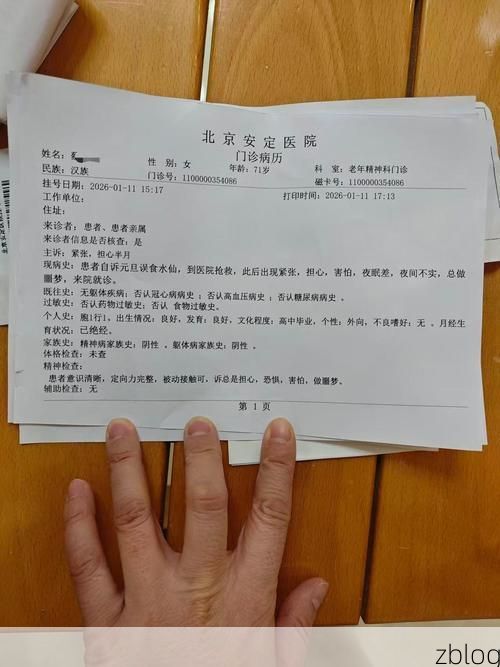 北京安定医院
门诊病历
姓名：
性 别：女
年龄：71岁
科 室：老年精神科门诊
民族：汉族
门诊号：1100000354086
磁卡号：1100000354086
挂号日期：2026-01-11 15:17
打印时间：2026-01-11 17:13
工作单位：
住址：
来诊者：患者、患者亲属
来诊者信息是否核查：是
主诉：紧张，担心半月
现病史：患者自诉元旦误食水仙，到医院抢救，此后出现紧张，担心，害怕，夜眠差，夜间不实，总做
噩梦，来院就诊。
既往史：无躯体疾病；否认冠心病病史 ；否认高血压病史 ；否认糖尿病病史 。
过敏史：否认药物过敏史；否认 食物过敏史。
个人史：胞1行1，出生情况：良好，发育：良好，文化程度：高中毕业，个性：外向，不良嗜好：无 。月经生
育状况：已绝经。
家族史：精神病家族史：阴性 。躯体病家族史：阴性 。
体格检查：未查
精神检查：
患者意识清晰，定向力完整，被动接触可，诉总是担心，恐惧，害怕，做噩梦。
辅助检查：无
第 1 页
zblog